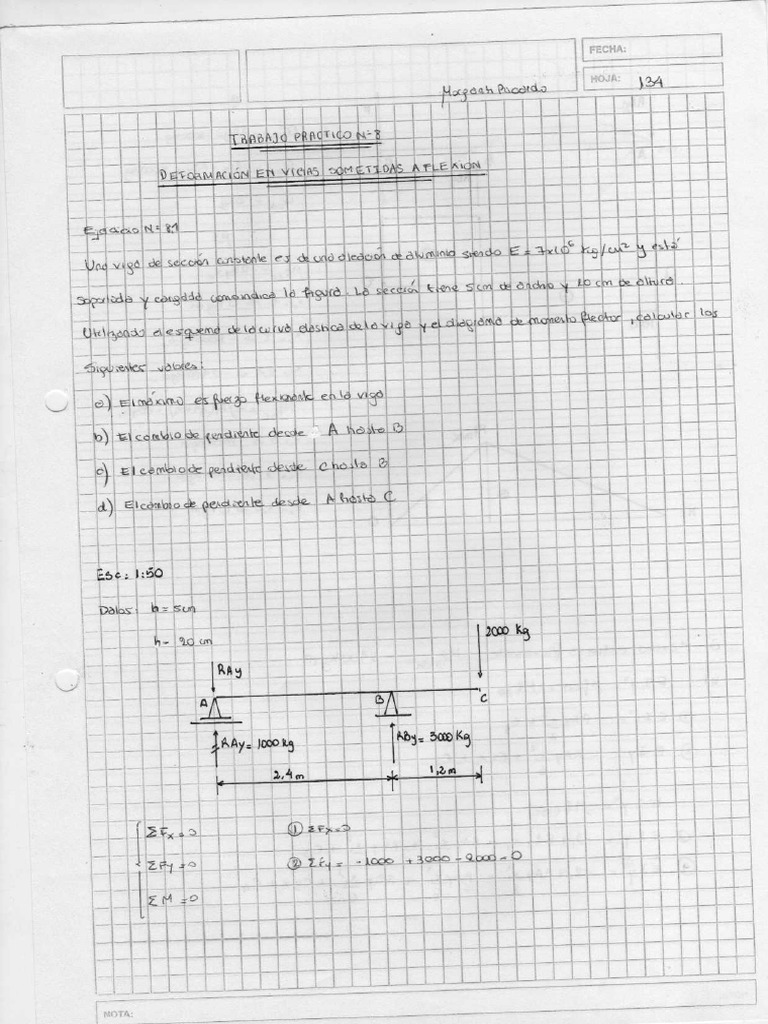 FECHA:
HOJA: 134
TRABAJO PRACTICO N=8
DEFORMACIÓN EN VIGAS SOMETIDAS A FLEXION
Ejercicio N=8.1
Una viga de sección constante es de una aleación de aluminio siendo E = 7x10⁶ Kg/cm² y está
soportada y cargada como indica la figura. La sección tiene 5cm de ancho y 20 cm de altura.
Utilizando el esquema de la curva elástica de la viga y el diagrama de momento flector, calcular los
siguientes valores:
a) El máximo esfuerzo flexionante en la viga
b) El cambio de pendiente desde A hasta B
c) El cambio de pendiente desde C hasta B
d) El cambio de pendiente desde A hasta C
Esc: 1:50
Datos: b = 5cm
h = 20 cm
2000 Kg
RAy
A B C
RAy = 1000 Kg
RBy = 3000 Kg
2,4 m 1,2 m
ΣFx = 0 ① ΣFx = 0
ΣFy = 0 ② ΣFy = -1000 + 3000 - 2000 = 0
ΣM = 0
NOTA: